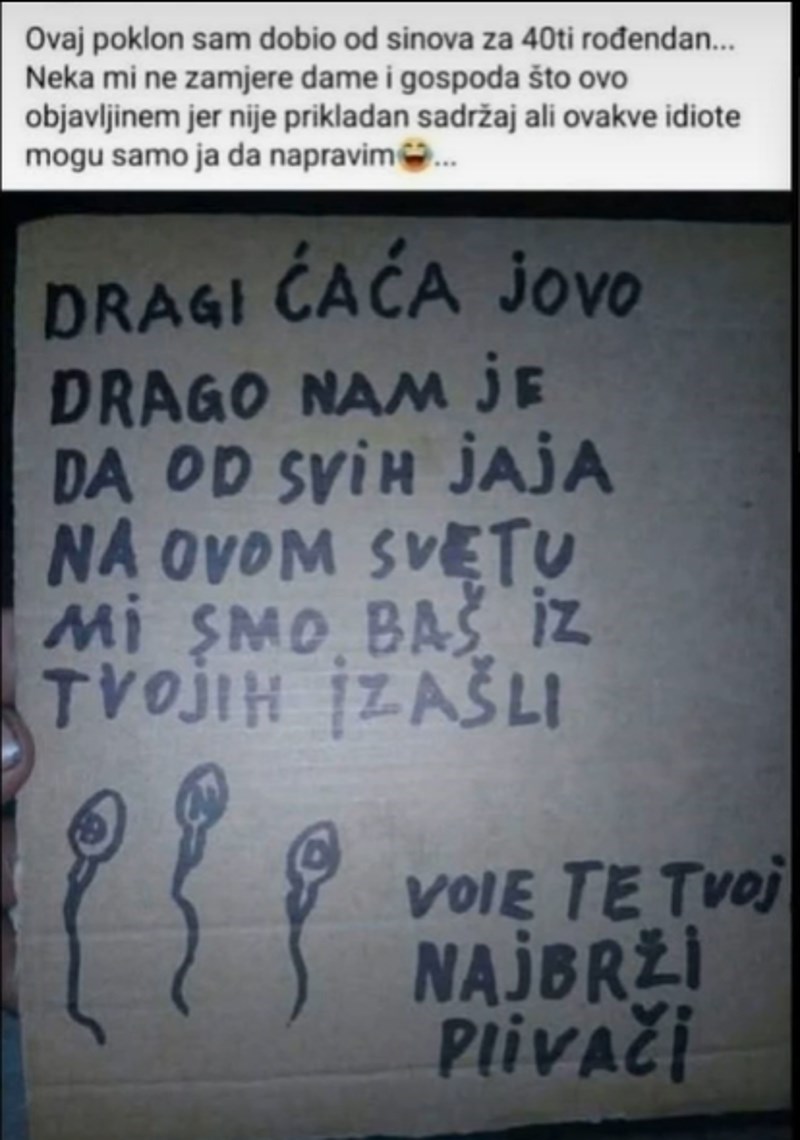 Ovaj poklon sam dobio od sinova za 40ti rođendan...
Neka mi ne zamjere dame i gospoda što ovo
objavljinem jer nije prikladan sadržaj ali ovakve idiote
mogu samo ja da napravim😂...
DRAGI ĆAĆA JOVO
DRAGO NAM JE
DA OD SVIH JAJA
NA OVOM SVETU
MI SMO BAŠ IZ
TVOJIH IZAŠLI
N
D
VOlE TE TVOJ
NAJBRŽI
PlIVAČI